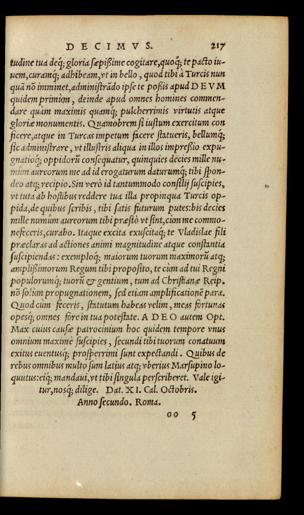 DECIMVS. 217
tudine tua deq; gloria sæpißime cogitare, quoq; te pacto iu-
uem, curamq; adhibeam, vt in bello, quod tibi à Turcis nun
quā nō imminet, administrādo ipse te poßis apud DEVM
quidem primùm, deinde apud omnes homines commen-
dare quàm maximis quamq; pulcherrimis virtutis atque
gloriæ monumentis. Quamobrem si iustum exercitum con
ficere, atque in Turcas impetum facere statueris, bellumq;
sic administrare, vt illustris aliqua in illos impreßio expu-
gnatioq; oppidorū consequatur, quinquies decies mille nu-
mûm aureorum me ad id erogaturum daturumq; tibi spon-
deo atq; recipio. Sin verò id tantummodo consilij suscipies,
vt tuta ab hostibus reddere tua illa propinqua Turcis op-
pida, de quibus scribis, tibi satis futurum putes: bis decies
mille numûm aureorum tibi præstò vt sint, cùm me commo-
nefeceris, curabo. Itaque excita exuscitaq; te Vladislae fili
præclaras ad actiones animi magnitudine atque constantia
suscipiendas: exemploq; maiorum tuorum maximorū atq;
amplißimorum Regum tibi proposito, te cùm ad tui Regni
populorumq; tuorū & gentium, tum ad Christianæ Reip.
nō solùm propugnationem, sed etiam amplificationē para.
Quod cùm feceris, statutum habeas velim, meas fortunas
opesq; omnes fore in tua potestate. A DEO autem Opt.
Max cuius causæ patrocinium hoc quidem tempore vnus
omnium maximè suscipies, secundi tibi tuorum conatuum
exitus euentusq; prosperrimi sunt expectandi. Quibus de
rebus omnibus multo sum latius atq; vberius Marsupino lo-
quutus: eiq; mandaui, vt tibi singula perscriberet. Vale igi-
tur, nosq; dilige. Dat. XI. Cal. Octobris.
Anno secundo. Roma.
oo 5